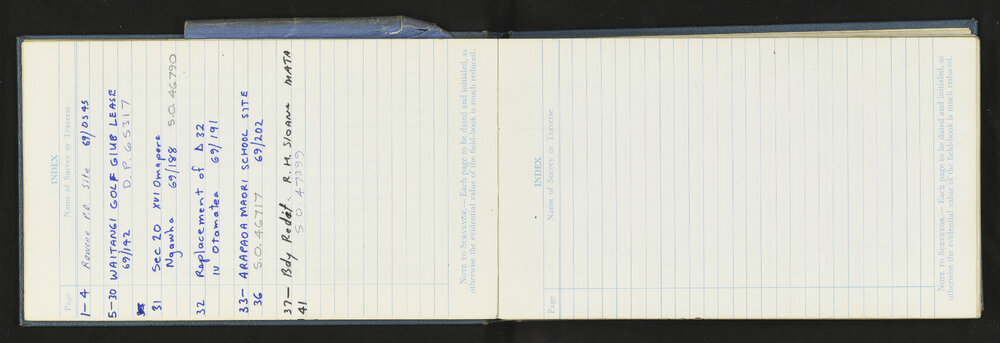 INDEX
Page Name of Survey or Traverse
1-4 Rawene P.O Site 69/DS45
5-30 WAITANGI GOLF CLUB LEASE
69/142 D.P. 65317
31 Sec 20 XVI Omapere
Ngawha 69/188 S.O. 46790
32 Replacement of Δ 32
IV Otamatea 69/191
33- ARAPAOA MAORI SCHOOL SITE
36 S.O. 46717 69/202
37- Bdy Redef. R.H. SLOANE MATA
41 S O 47399
NOTE TO SURVEYOR.—Each page to be dated and initialed, as
otherwise the evidential value of the field-book is much reduced.
INDEX
Page Name of Survey or Traverse
NOTE TO SURVEYOR.—Each page to be dated and initialed, as
otherwise the evidential value of the field-book is much reduced.